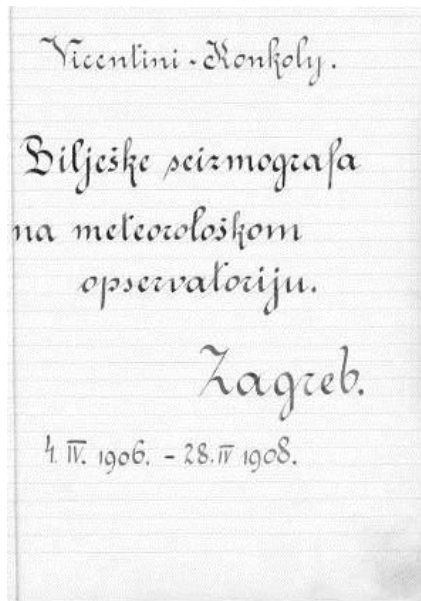 Vicentini - Konkoly.
Bilješke seizmografa
na meteorološkom
opservatoriju.
Zagreb.
4. IV. 1906. - 28. IV 1908.